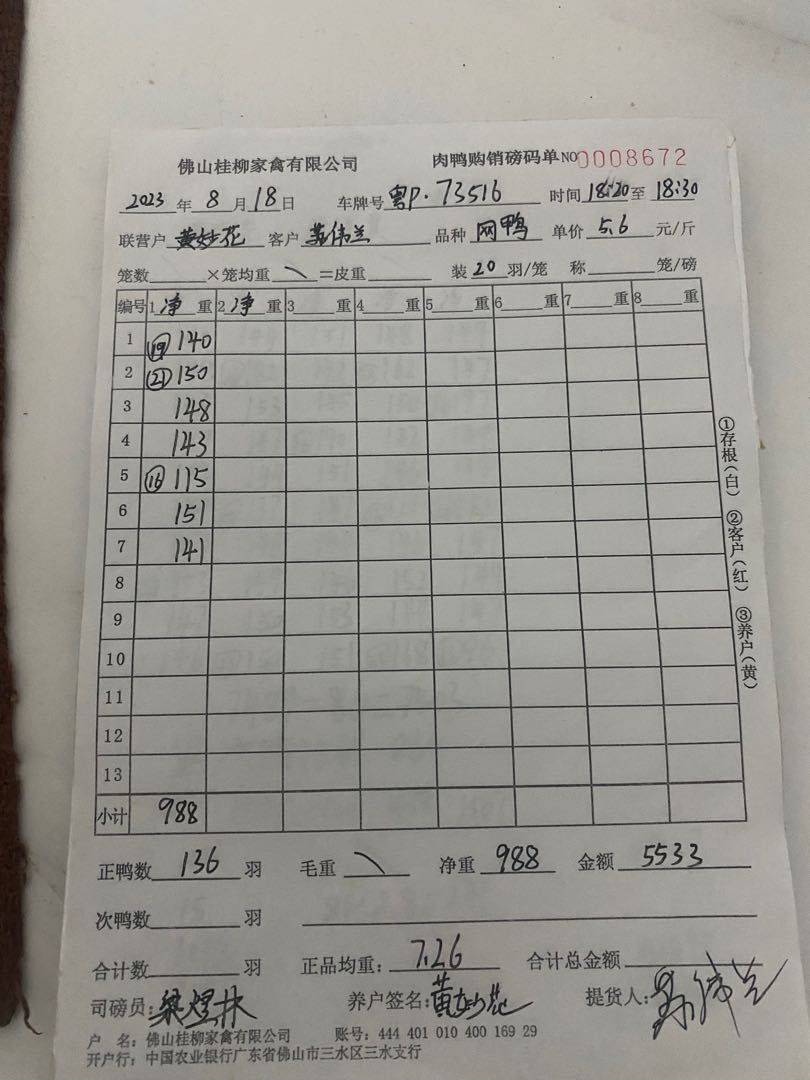 佛山桂柳家禽有限公司 肉鸭购销磅码单 NO 0008672
2023 年 8 月 18 日 车牌号 粤P·73516 时间 18:20 至 18:30
联营户 黄妙花 客户 苏伟兰 品种 网鸭 单价 5.6 元/斤
笼数 ×笼均重 \ =皮重 装 20 羽/笼 称 笼/磅
编号 1 净 重 2 净 重 3 重 4 重 5 重 6 重 7 重 8 重
1 ⑲ 140
2 ㉑ 150
3 148
4 143
5 ⑯ 115
6 151
7 141
8
9
10
11
12
13
小计 988
①存根(白) ②客户(红) ③养户(黄)
正鸭数 136 羽 毛重 \ 净重 988 金额 5533
次鸭数 羽
合计数 羽 正品均重: 7.26 合计总金额
司磅员: 梁煜林 养户签名: 黄妙花 提货人: 苏伟兰
户 名: 佛山桂柳家禽有限公司 账号: 444 401 010 400 169 29
开户行: 中国农业银行广东省佛山市三水区三水支行